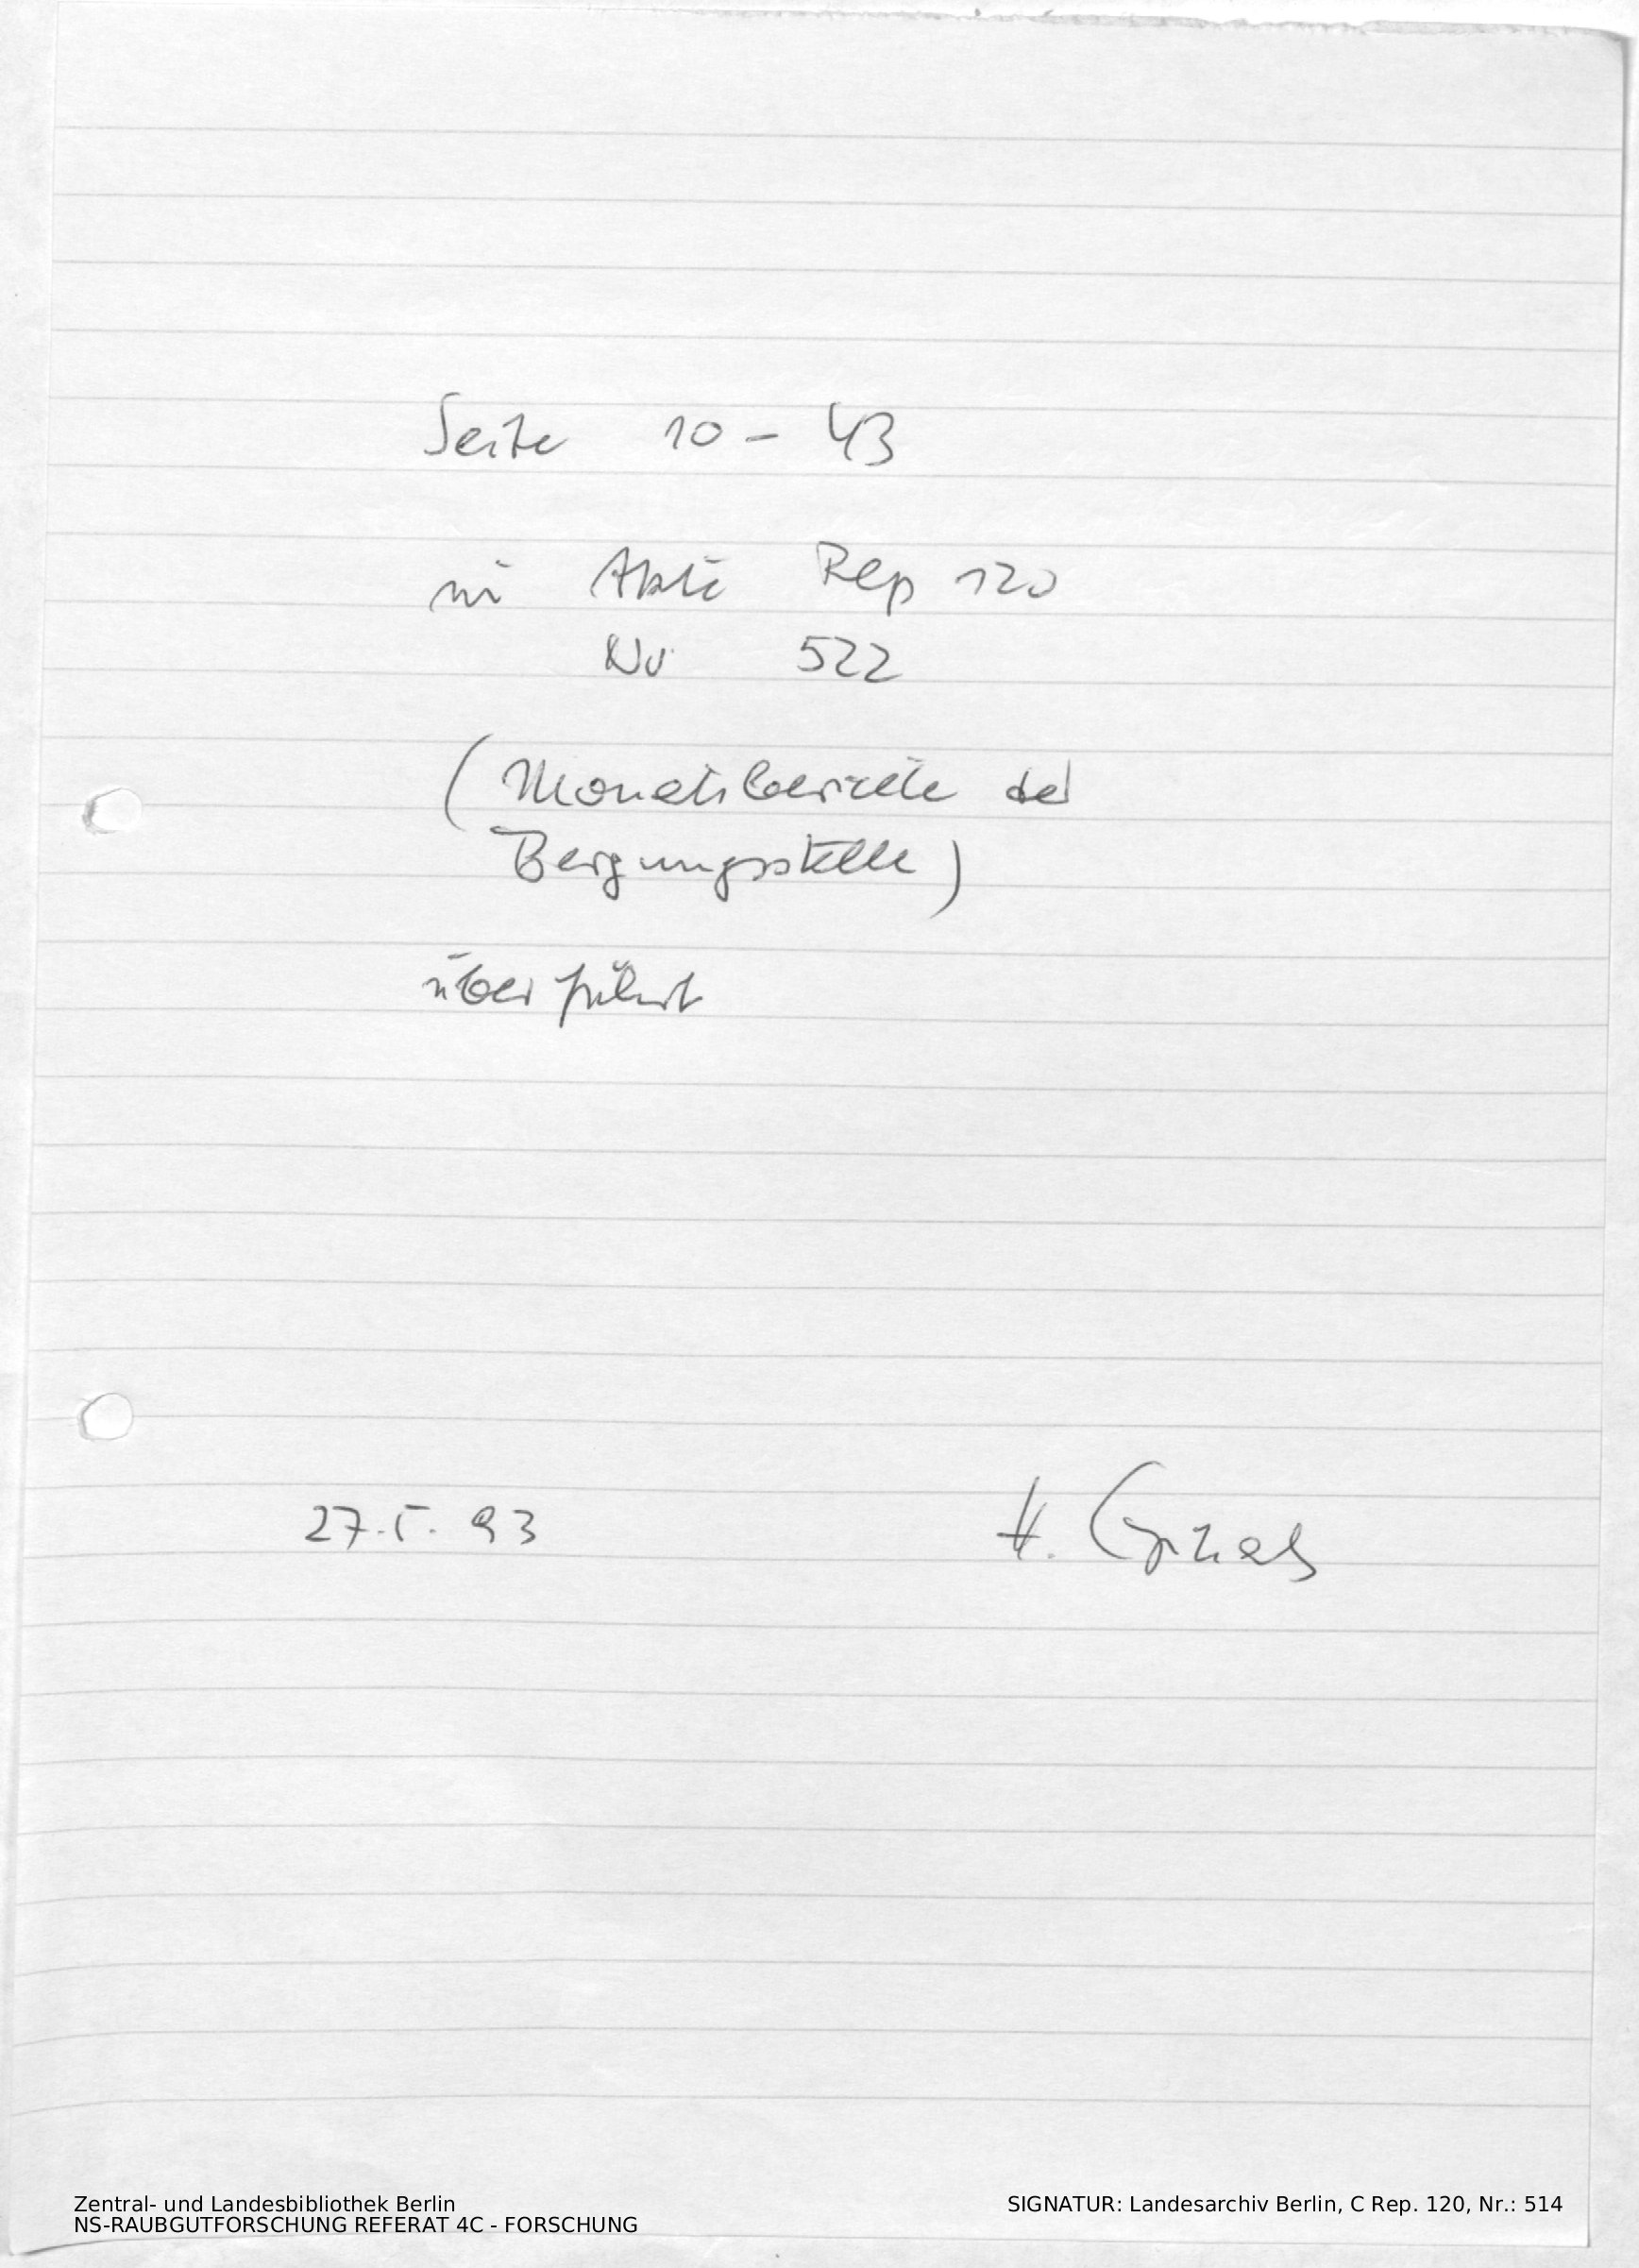 Seite 10 - 43
in Akte Rep 120
Nr 522
(Monatsberichte der
Bergungsstelle)
überführt
27.5.93
H.
Zentral- und Landesbibliothek Berlin
NS-RAUBGUTFORSCHUNG REFERAT 4C - FORSCHUNG
SIGNATUR: Landesarchiv Berlin, C Rep. 120, Nr.: 514